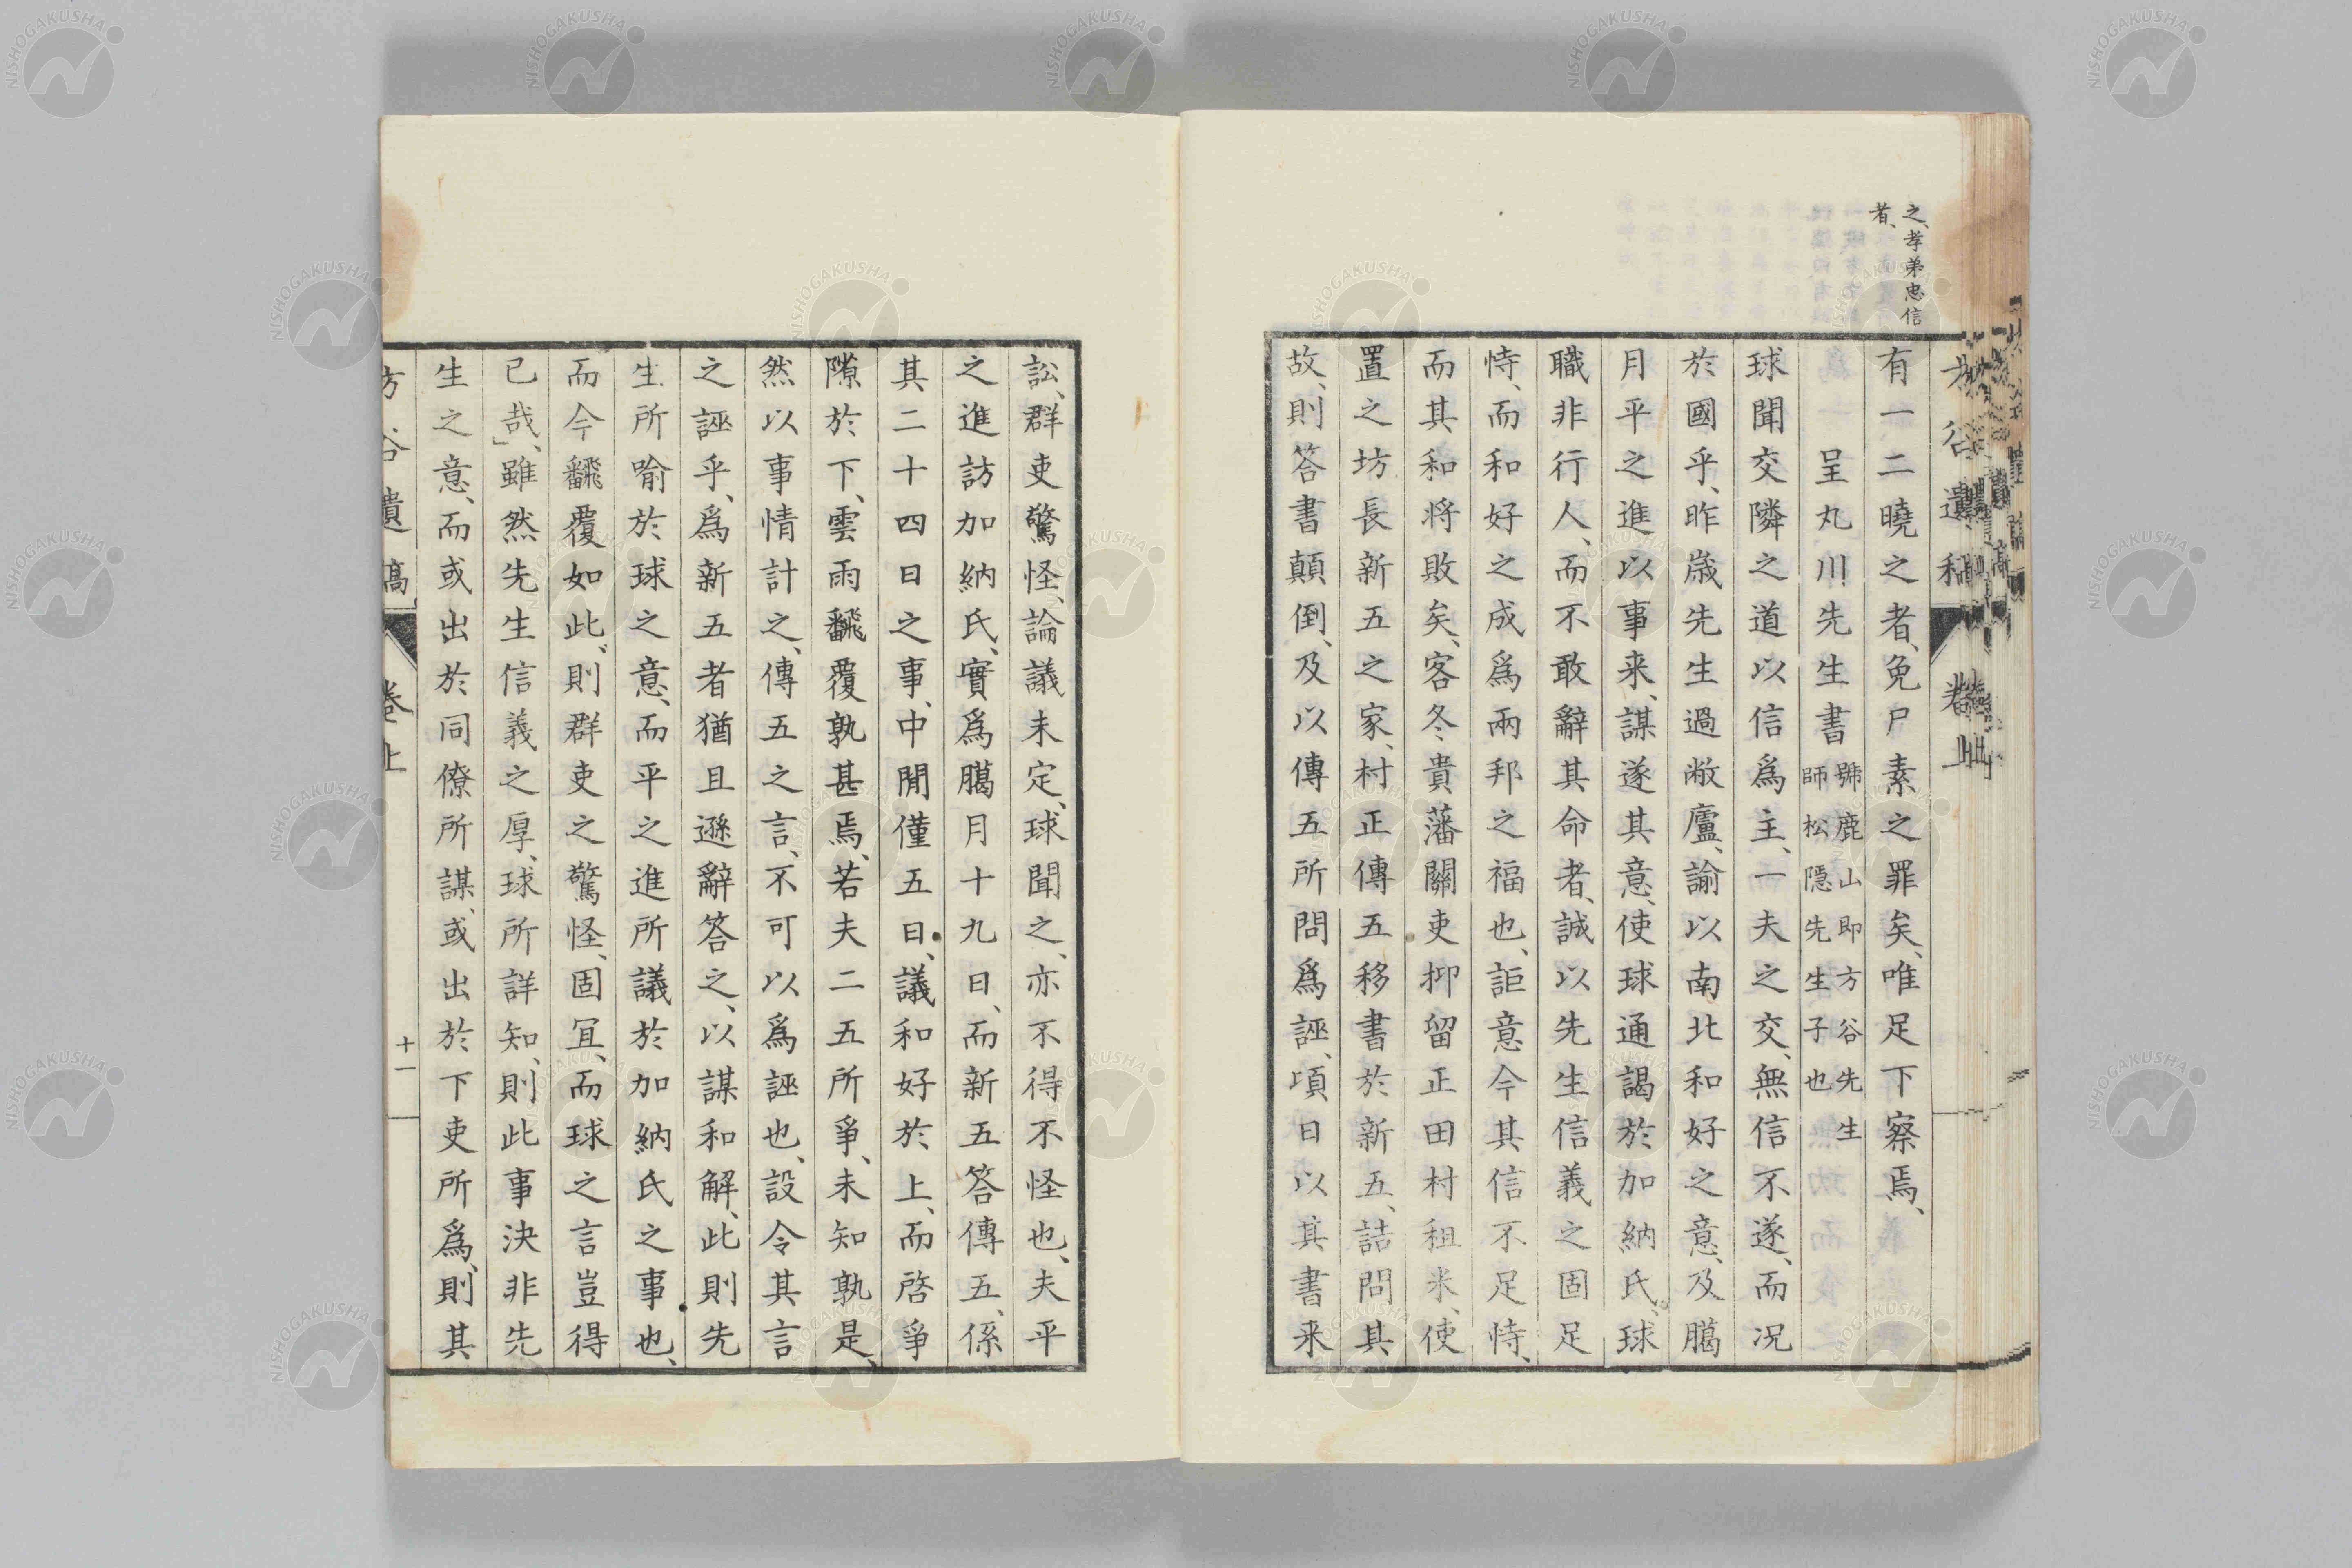 之、孝弟忠信
者、
有一二曉之者、免尸素之罪矣、唯足下察焉、
呈丸川先生書 號鹿山即方谷先生
師松隱先生子也
球聞交隣之道以信爲主、一夫之交、無信不遂、而况
於國乎、昨歲先生過敝廬、諭以南北和好之意、及臈
月平之進以事来、謀遂其意、使球通謁於加納氏、球
職非行人、而不敢辭其命者、誠以先生信義之固足
恃、而和好之成爲兩邦之福也、詎意今其信不足恃、
而其和将敗矣、客冬貴藩關吏抑留正田村租米、使
置之坊長新五之家、村正傳五移書於新五、詰問其
故、則答書顛倒、及以傳五所問爲誣、頃日以其書来
訟、群吏驚怪、論議未定、球聞之、亦不得不怪也、夫平
之進訪加納氏、實爲臈月十九日、而新五答傳五、係
其二十四日之事、中間僅五日、議和好於上、而啓爭
隙於下、雲雨飜覆孰甚焉、若夫二五所爭、未知孰是、
然以事情計之、傳五之言、不可以爲誣也、設令其言
之誣乎、爲新五者猶且遜辭答之、以謀和解、此則先
生所喻於球之意、而平之進所議於加納氏之事也、
而今飜覆如此、則群吏之驚怪、固宜、而球之言豈得
已哉、」雖然先生信義之厚、球所詳知、則此事決非先
生之意、而或出於同僚所謀、或出於下吏所爲、則其
方谷遺稿 卷上 十一
NISHOGAKUSHA